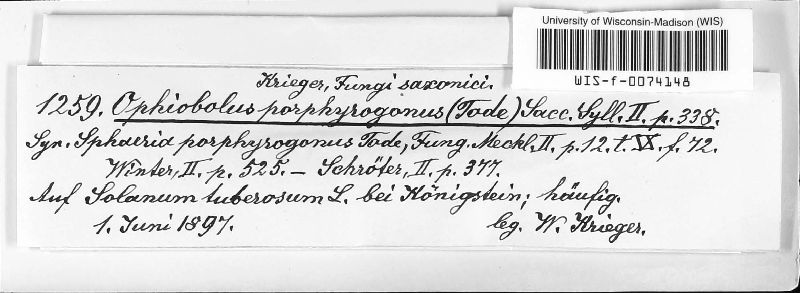 University of Wisconsin-Madison (WIS)
WIS-f-0074148
Krieger, Fungi saxonici.
1259. Ophiobolus porphyrogonus (Tode) Sacc. Syll. II. p. 338.
Syn. Sphaeria porphyrogonus Tode, Fung. Meckl. II. p. 12. t. IX. f. 72.
Winter, II. p. 525. – Schröter, II. p. 377.
Auf Solanum tuberosum L. bei Königstein; häufig.
1. Juni 1897. leg. W. Krieger.